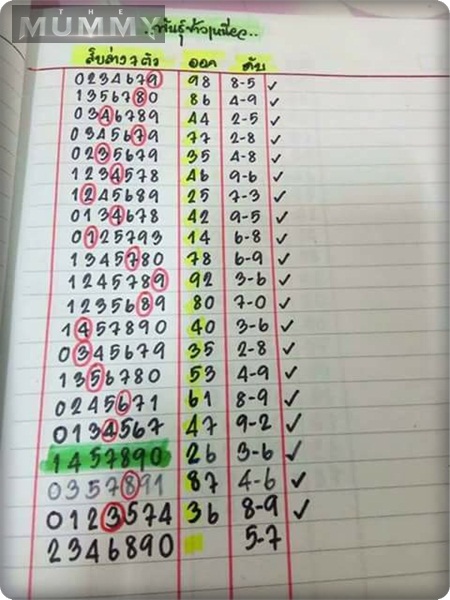 THE
MUMMY
..พันธุ์ข้าวเหนียว..
สิบล่าง 7 ตัว ออก ดับ
0234679 98 8-5 ✓
1356780 86 4-9 ✓
0346789 44 2-5 ✓
0345679 77 2-8 ✓
0235679 35 4-8 ✓
1234578 46 9-6 ✓
1245689 25 7-3 ✓
0134678 42 9-5 ✓
0125793 14 6-8 ✓
1345780 78 6-9 ✓
1245789 92 3-6 ✓
1235689 80 7-0 ✓
1457890 40 3-6 ✓
0345679 35 2-8 ✓
1356780 53 4-9 ✓
0245671 61 8-9 ✓
0134567 47 9-2 ✓
1457890 26 3-6 ✓
0357891 87 4-6 ✓
0123574 36 8-9 ✓
2346890 5-7